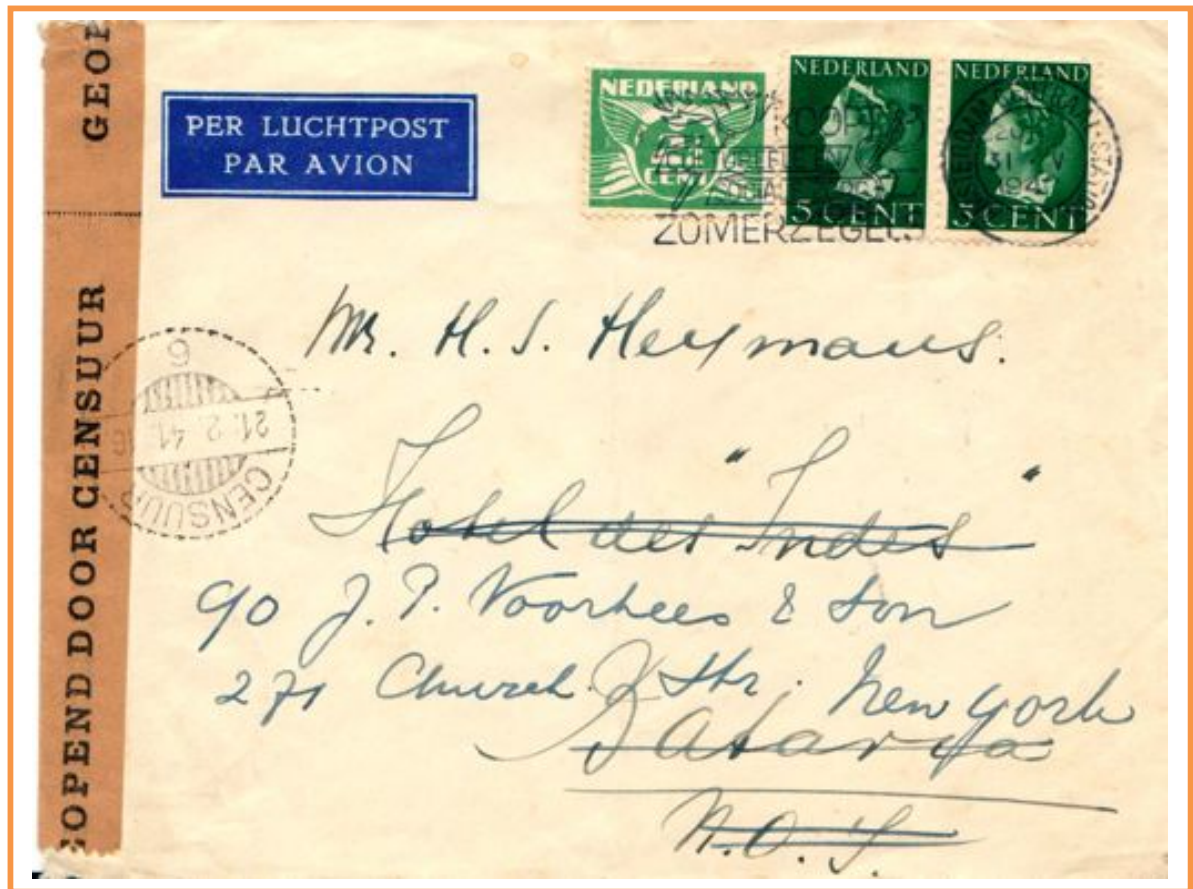 GEOP
GEOPEND DOOR CENSUUR
PER LUCHTPOST
PAR AVION
NEDERLAND
CENT
NEDERLAND
5 CENT
NEDERLAND
5 CENT
ZOMERZEGELS
31 V
6
21.2.41
CENSUUR
Mr. H. S. Heymans.
Hotel des "Indes"
c/o J. P. Voorhees & Son
271 Church Str. New York
Batavia
N.O.I.